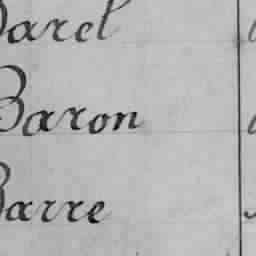 Barel
Baron
Barre